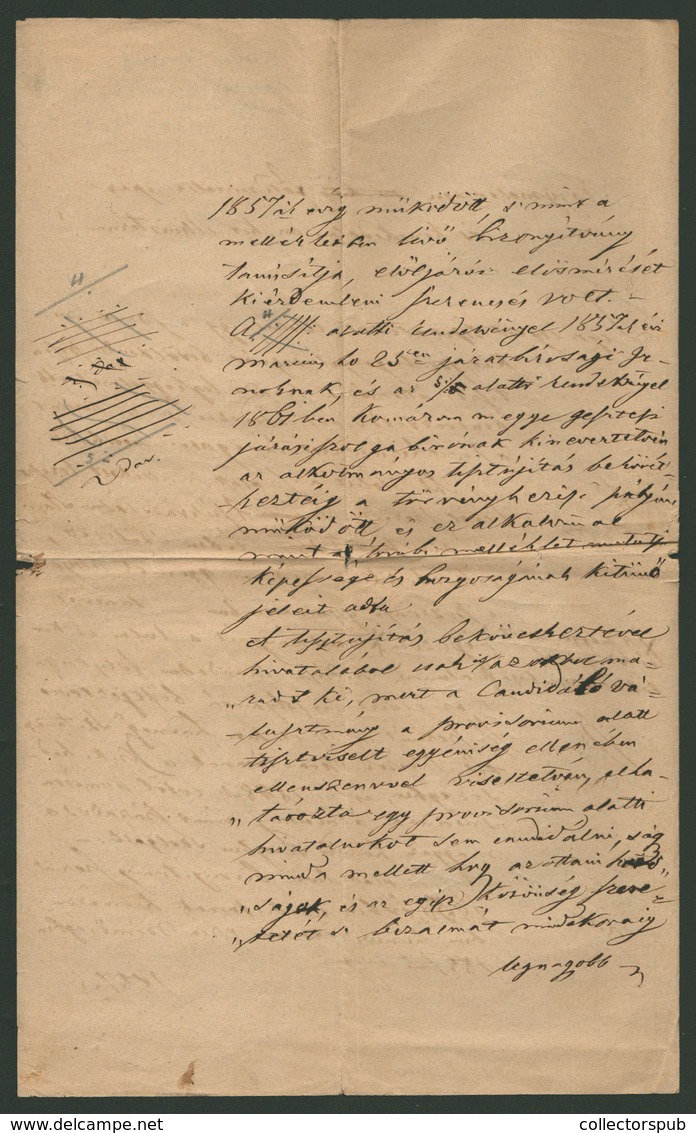 1857ik évig működött s mint a
mellékletben lévő bizonyítvány
tanúsítja, előljárói elösmérését
kiérdemleni szerencsés volt. –
A alatti rendelvényel 1857ik évi
március ho 25én járásbírósági Ir-
noknak, és az 5/. alatti rendelvényel
1861ben Komárom megye gesztesi
járási szolgabírónak kineveztetvén
az alkotmányos tisztújítás bekövet-
keztéig a törvénykezési pályán
működött és ez alkalommal
mint a további melléklet mutatja
képessége és buzgoságának kitünő
jeleit adta.
A tisztújítás bekövetkeztével
hivatalából csak azokbol ma-
„radt ki, mert a Candidáló vá-
lasztmány a provisorium alatt
tisztviselt egyéniség ellenében
ellenszenvvel viseltetvén, elha-
„tározta egy provisorium alatti
hivatalnokot sem candidálni,
mind a mellett hogy az ottani
„ságok, és az egész Közönség szere-
„tetét s bizalmát mindekoraig
legnagobb
4/.
5/.
collectorspub